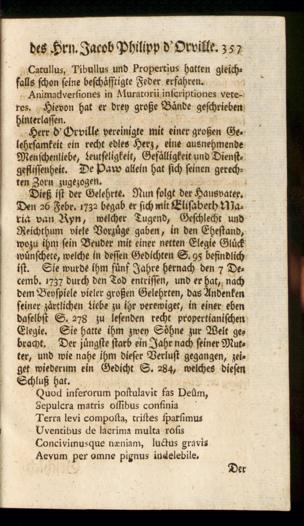 des Hrn. Jacob Philipp d'Orville. 357
Catullus, Tibullus und Propertius hatten gleich-
falls schon seine beschäfftigte Feder erfahren.
Animadversiones in Muratorii inscriptiones vete-
res. Hievon hat er drey große Bände geschrieben
hinterlassen.
Herr d'Orville vereinigte mit einer großen Ge-
lehrsamkeit ein recht edles Herz, eine ausnehmende
Menschenliebe, Leutseligkeit, Gefälligkeit und Dienst-
geflissenheit. De Paw allein hat sich seinen gerech-
ten Zorn zugezogen.
Dieß ist der Gelehrte. Nun folgt der Hausvater.
Den 26 Febr. 1732 begab er sich mit Elisabeth Ma-
ria van Ryn, welcher Tugend, Geschlecht und
Reichthum viele Vorzüge gaben, in den Ehestand,
wozu ihm sein Bruder mit einer netten Elegie Glück
wünschete, welche in dessen Gedichten S. 95 befindlich
ist. Sie wurde ihm fünf Jahre hernach den 7 De-
cemb. 1737 durch den Tod entrissen, und er hat, nach
dem Beyspiele vieler großen Gelehrten, das Andenken
seiner zärtlichen Liebe zu ihr verewiget, in einer eben
daselbst S. 278 zu lesenden recht propertianischen
Elegie. Sie hatte ihm zwey Söhne zur Welt ge-
bracht. Der jüngste starb ein Jahr nach seiner Mut-
ter, und wie nahe ihm dieser Verlust gegangen, zei-
get wiederum ein Gedicht S. 284, welches diesen
Schluß hat.
Quod inferorum postulavit fas Deûm,
Sepulcra matris ossibus confinia
Terra levi composta, tristes sparsimus
Uventibus de lacrima multa rosis
Concivimusque næniam, luctus gravis
Aevum per omne pignus indelebile.
Der